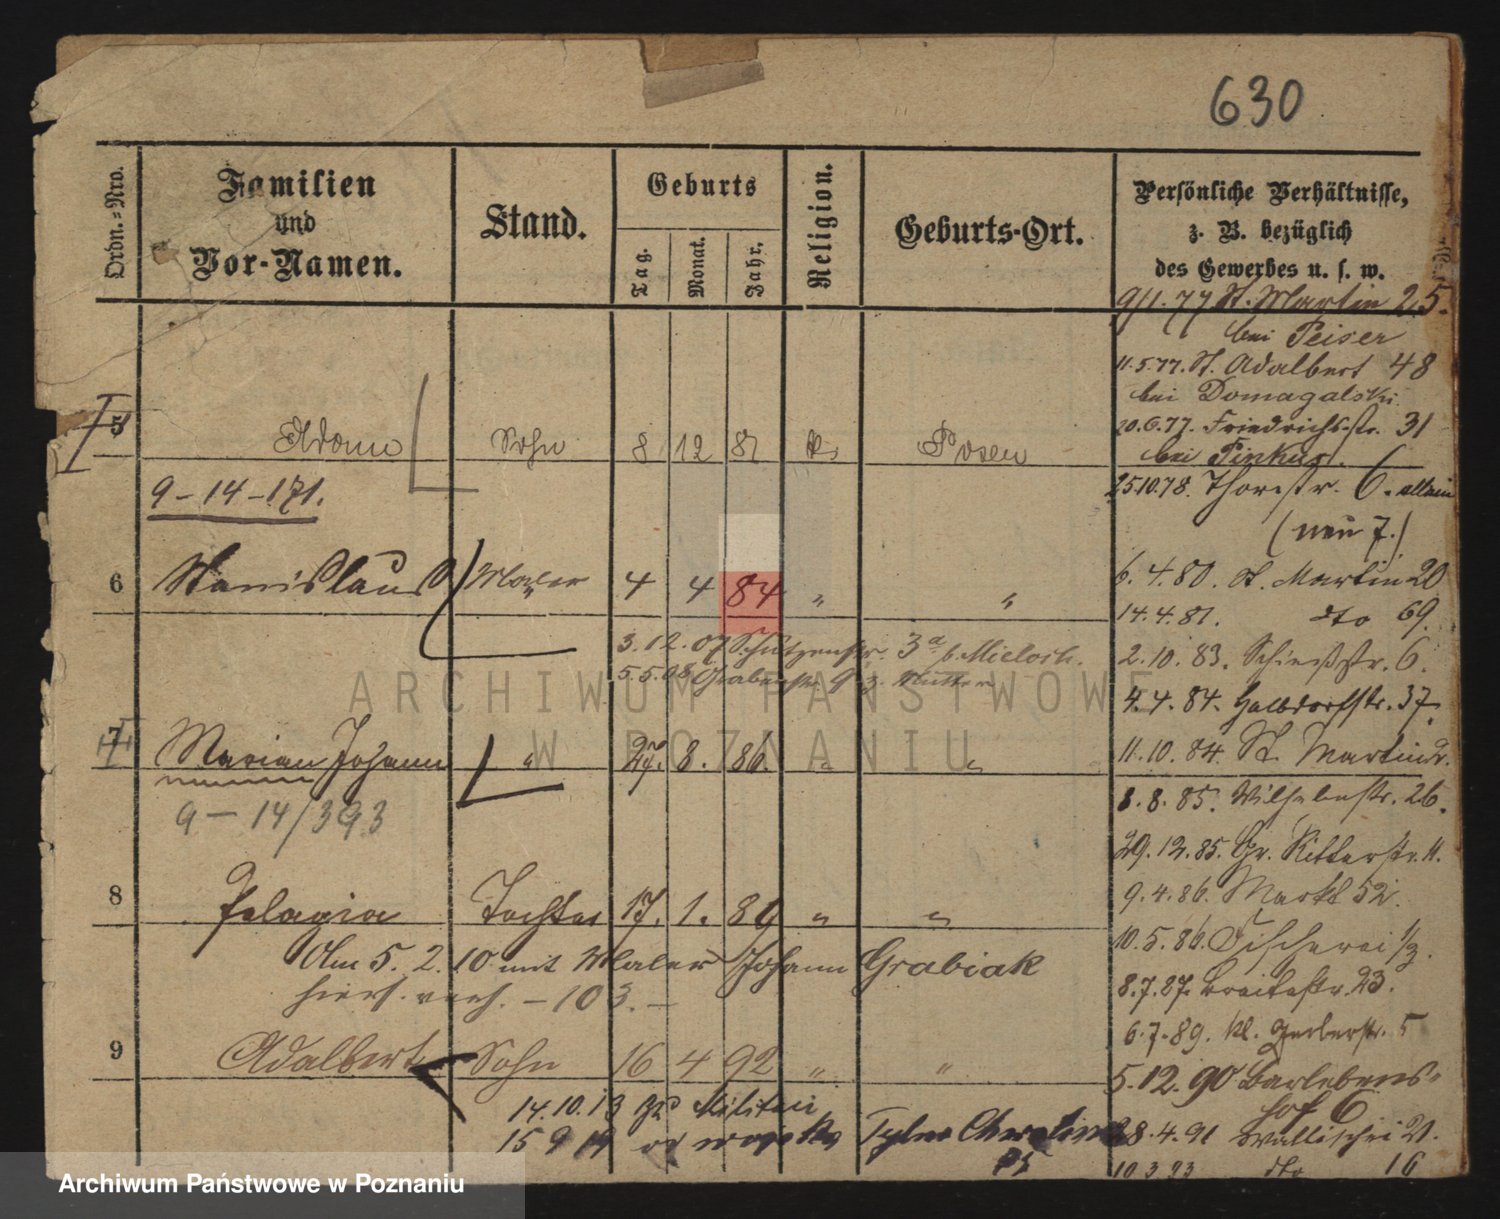 630
Ordn.=Nro.
Familien
und
Vor-Namen.
Stand.
Geburts
Tag.
Monat.
Jahr.
Religion.
Geburts-Ort.
Persönliche Verhältnisse,
z. B. bezüglich
des Gewerbes u. s. w.
9/1.77 St. Martin 25.
bei Peiser
11.5.77. St. Adalbert 48
bei Domagalski
20.6.77. Friedrichstr. 31
bei Pinkus.
5 Adam Sohn 8 12 81 k. Posen
25.10.78. Thorstr. 6. allein
(neu 7.)
9-14-171.
6 Stanislaus Maler 4 4 84 " "
6.4.80. St. Martin 20
14.4.81. dto 69.
3.12.07 Schützenstr. 3a b. Mieloch.
5.5.08 Grabenstr. 9 z. Mutter
2.10.83. Schießstr. 6.
4.4.84. Halbdorfstr. 37.
7 Marian Johann " 27. 8. 86. " "
11.10.84. St. Martin
8.8.85. Wilhelmstr. 26.
9-14/393
29.12.85. Gr. Ritterstr. 11.
9.4.86. Markt 52.
8 Pelagia Tochter 17. 1. 89 " "
10.5.86. Fischerei
Am 5.2.10 mit Maler Johann Grabiak
hiers. verh. -103.-
8.7.87. Breitestr. 23.
6.7.89. Kl. Gerberstr. 5
9 Adalbert Sohn 16 4 92 " "
5.12.90 Barlebens-
hof 6
14.10.13 zum Militär
28.4.91 Wallischei 21.
15 9 19
10.3.93 dto 16
ARCHIWUM PAŃSTWOWE
W POZNANIU
Archiwum Państwowe w Poznaniu